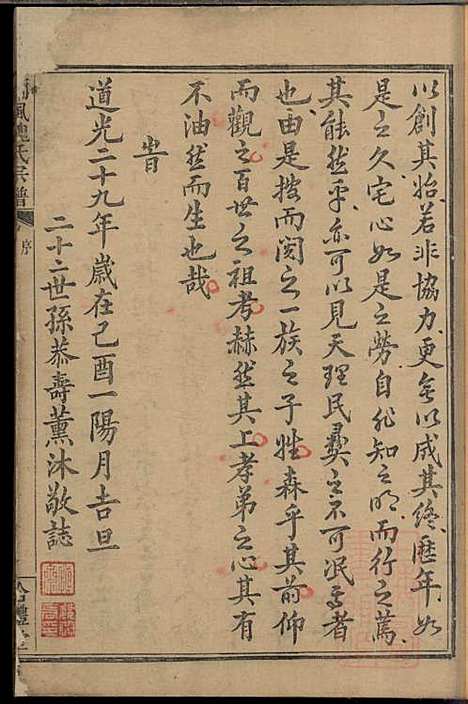 以創其始若非協力更無以成其終歷年如
是之久宅心如是之勞自非知之明而行之篤
其能然乎亦可以見天理民彝之不可泯焉者
也由是按而閱之一族之子姓森乎其前仰
而觀之百世之祖考赫然其上孝弟之心其有
不油然而生也哉
旹
道光二十九年歲在己酉一陽月吉旦
二十二世孫恭壽薰沐敬誌
魏氏宗譜
序